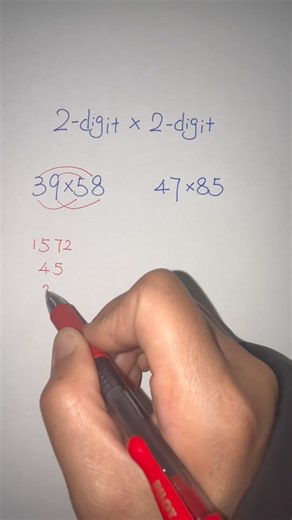 2-digit × 2-digit
39×58 47×85
1572
45
2